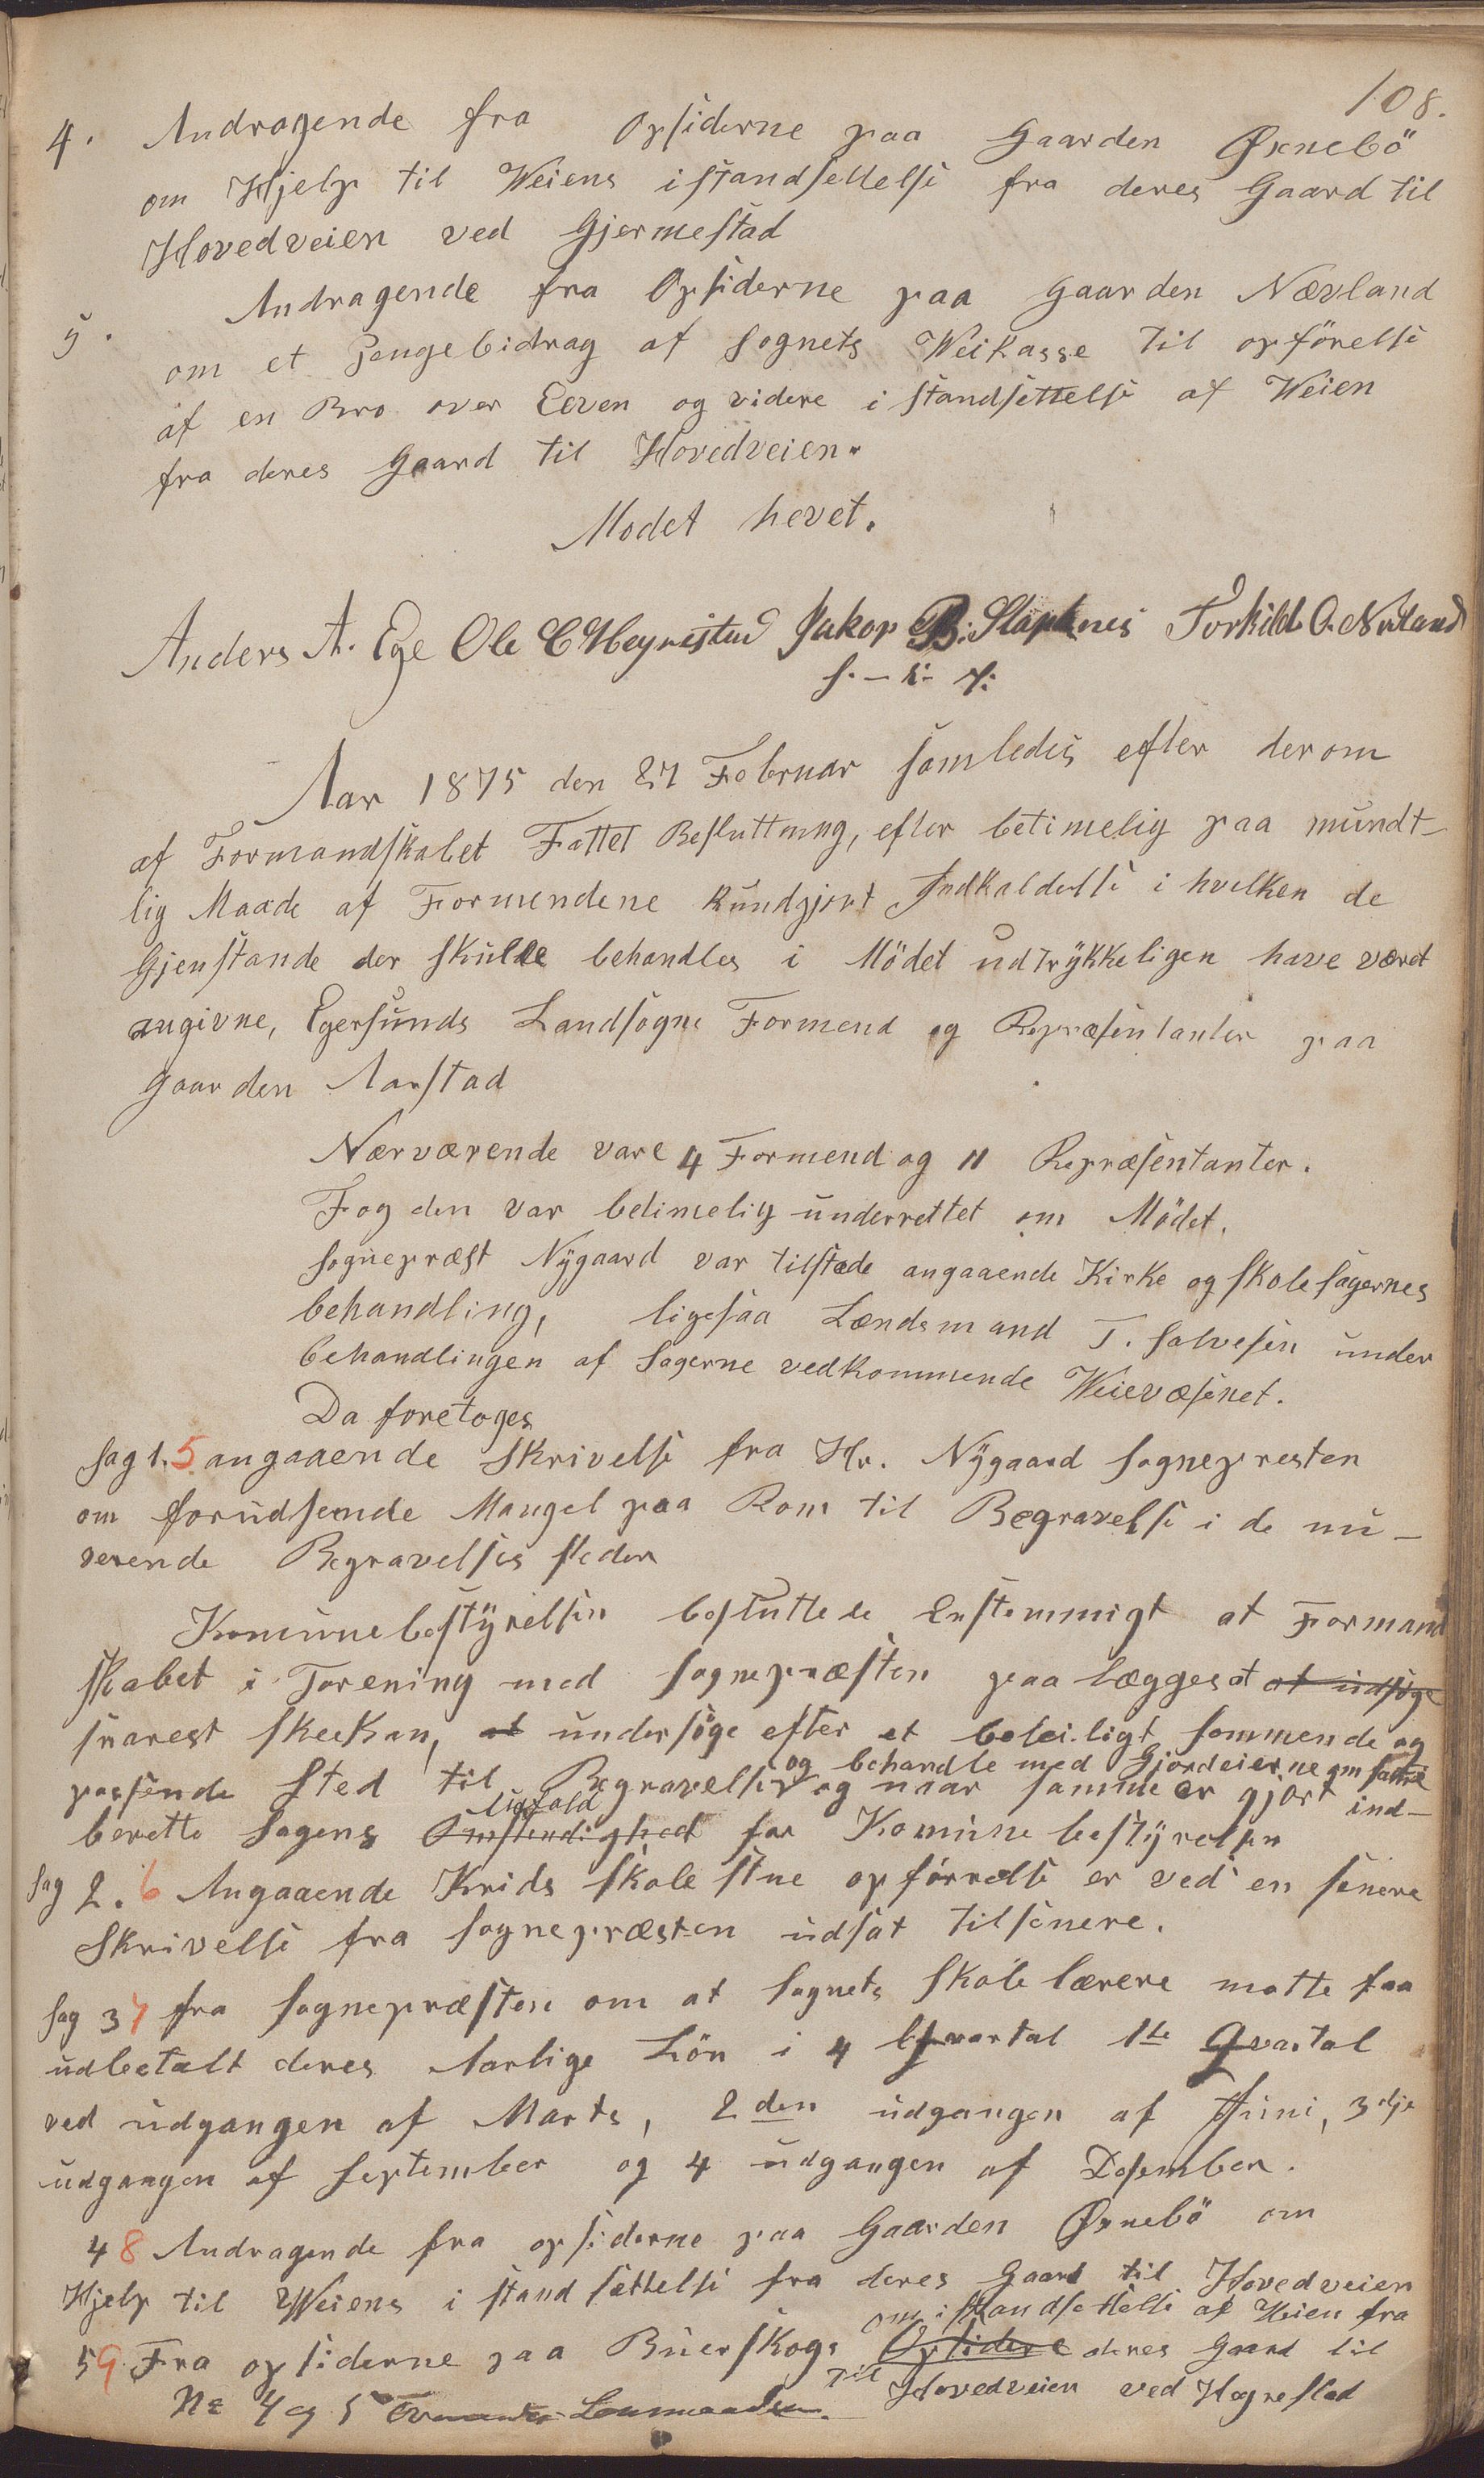 108.
4. Andragende fra Opsiderne paa Gaarden Øxnebö
om Hjelp til Weiens istandsettelse fra deres Gaard til
Hovedveien ved Gjermestad
5. Andragende fra Opsiderne paa Gaarden Nævland
om et Pengebidrag af Sognets Weikasse til opförelse
af en Bro over Elven og videre istandsettelse af Weien
fra deres Gaard til Hovedveien.
Modet hevet.
Anders A. Ege Ole C Hegrestad Jakop B. Slapknes Torkild O. Nevland
Aar 1875 den 27 Februar samledes efter derom
af Formandskabet Fattet Besluttning, efter betimelig paa mundt-
lig Maade af Formendene kundgjort Indkaldelse i hvilken de
Gjenstande der skulde behandles i Mödet udtrykkeligen have været
angivne, Egersunds Landsogns Formend og Repræsentanter paa
Gaarden Aarstad
Nærværende vare 4 Formend og 11 Repræsentanter.
Fogden var betimelig underrettet om Mödet.
Sognepræst Nygaard var tilstæde angaaende Kirke og Skolesagernes
behandling, ligesaa Lændsmand T. Salvesen under
behandlingen af Sagerne vedkommende Weievæsenet.
Da foretoges
Sag 1. 5 angaaende Skrivelse fra Hr. Nygaard Sognepresten
om forudseende Mangel paa Rom til Begravelse i de nu-
verende Begravelses steder
Komunebestyrelsen besluttede Enstemmigt at Formand
skabet i Forening med Sognepræsten paalægges at at udsöge
snarest skee kan, at undersöge efter et beleiligt sommende og
passende Sted til Begravelse og behandle med Gjordeierne om samme og naar samme er gjort ind-
berette Sagens Omstendighed for Komunebestyrelsen
Sag 2. 6 Angaaende Krids skolestue opförrelse er ved en senere
Skrivelse fra Sognepræsten udsat til senere.
Sag 3 7 fra Sognepræsten om at Sognets Skolelærere matte faa
udbetalt deres Aarlige Lön i 4 Qvartal 1te Qvartal
ved udgangen af Marts, 2den udgangen af Juni, 3dje
udgangen af September og 4 udgangen af Desember.
4 8 Andragende fra opsiderne paa Gaarden Øxnebö om
Hjelp til Weiens istandsættelse fra deres Gaard til Hovedveien
5 9 Fra opsiderne paa Buerskogs Opsidere om istandsettelse af Weien fra deres Gaard til
til Hovedveien ved Hegrestad
No 4 og 5 Lensmanden.